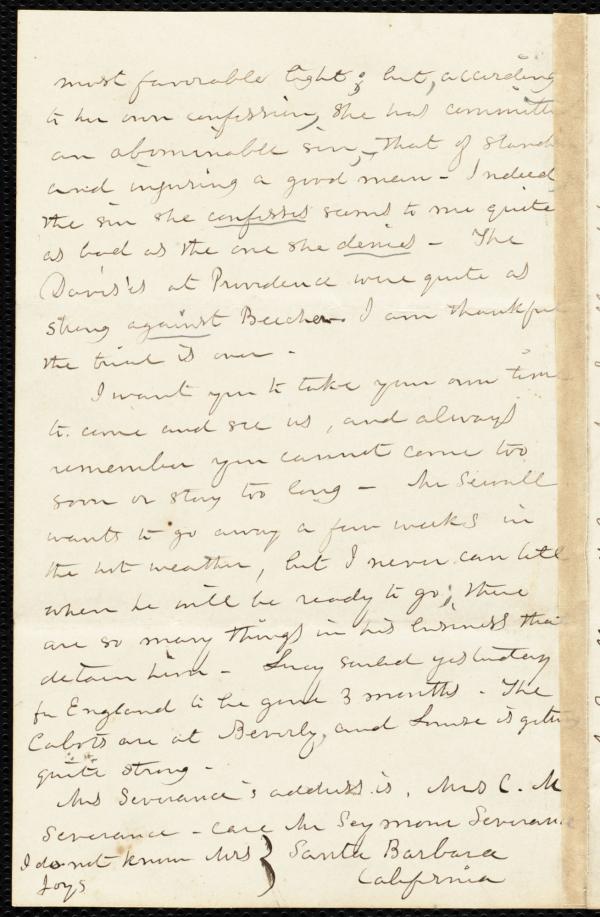 most favorable light; but, according
to her own confession, she has committed
an abominable sin, - that of slandering
and injuring a good man - Indeed
the sin she confesses seems to me quite
as bad as the one she denies - The
Davis'es at Providence were quite as
strong against Beecher. I am thankful
the trial is over -
I want you to take your own time
to come and see us, and always
remember you cannot come too
soon or stay too long - Mr Sewall
wants to go away a few weeks in
the hot weather, but I never can tell
when he will be ready to go; there
are so many things in his business that
detain him - Lucy sailed yesterday
for England to be gone 3 months - The
Cabots are at Beverly, and Louise is getting
quite strong -
Mrs Severance's address is, Mrs C. M
Severance - care Mr Seymour Severance
Santa Barbara
California
I do not know Mrs
Joys